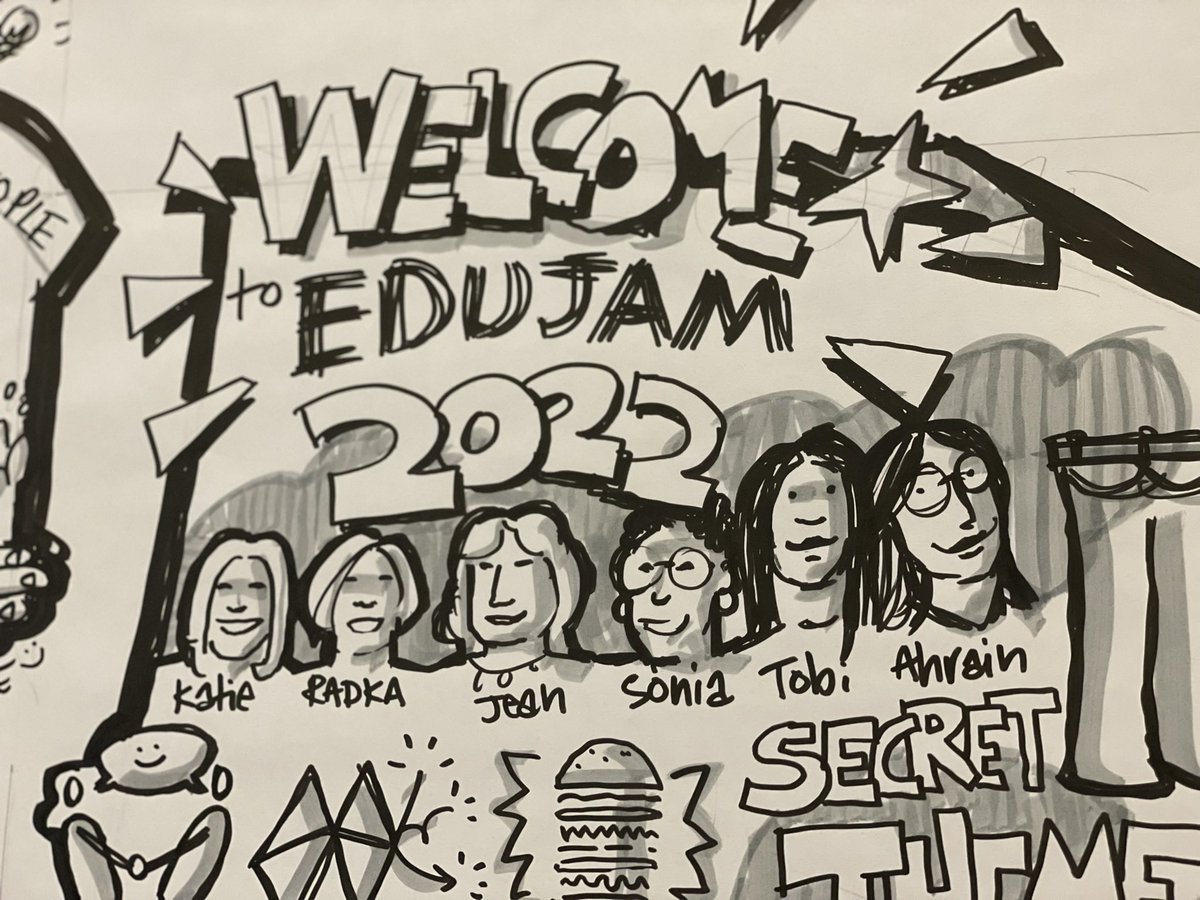 OPLE
WELCOME
to EDUJAM
2022
Katie RADKA Jean Sonia Tobi Ahrain
SECRET
THEME